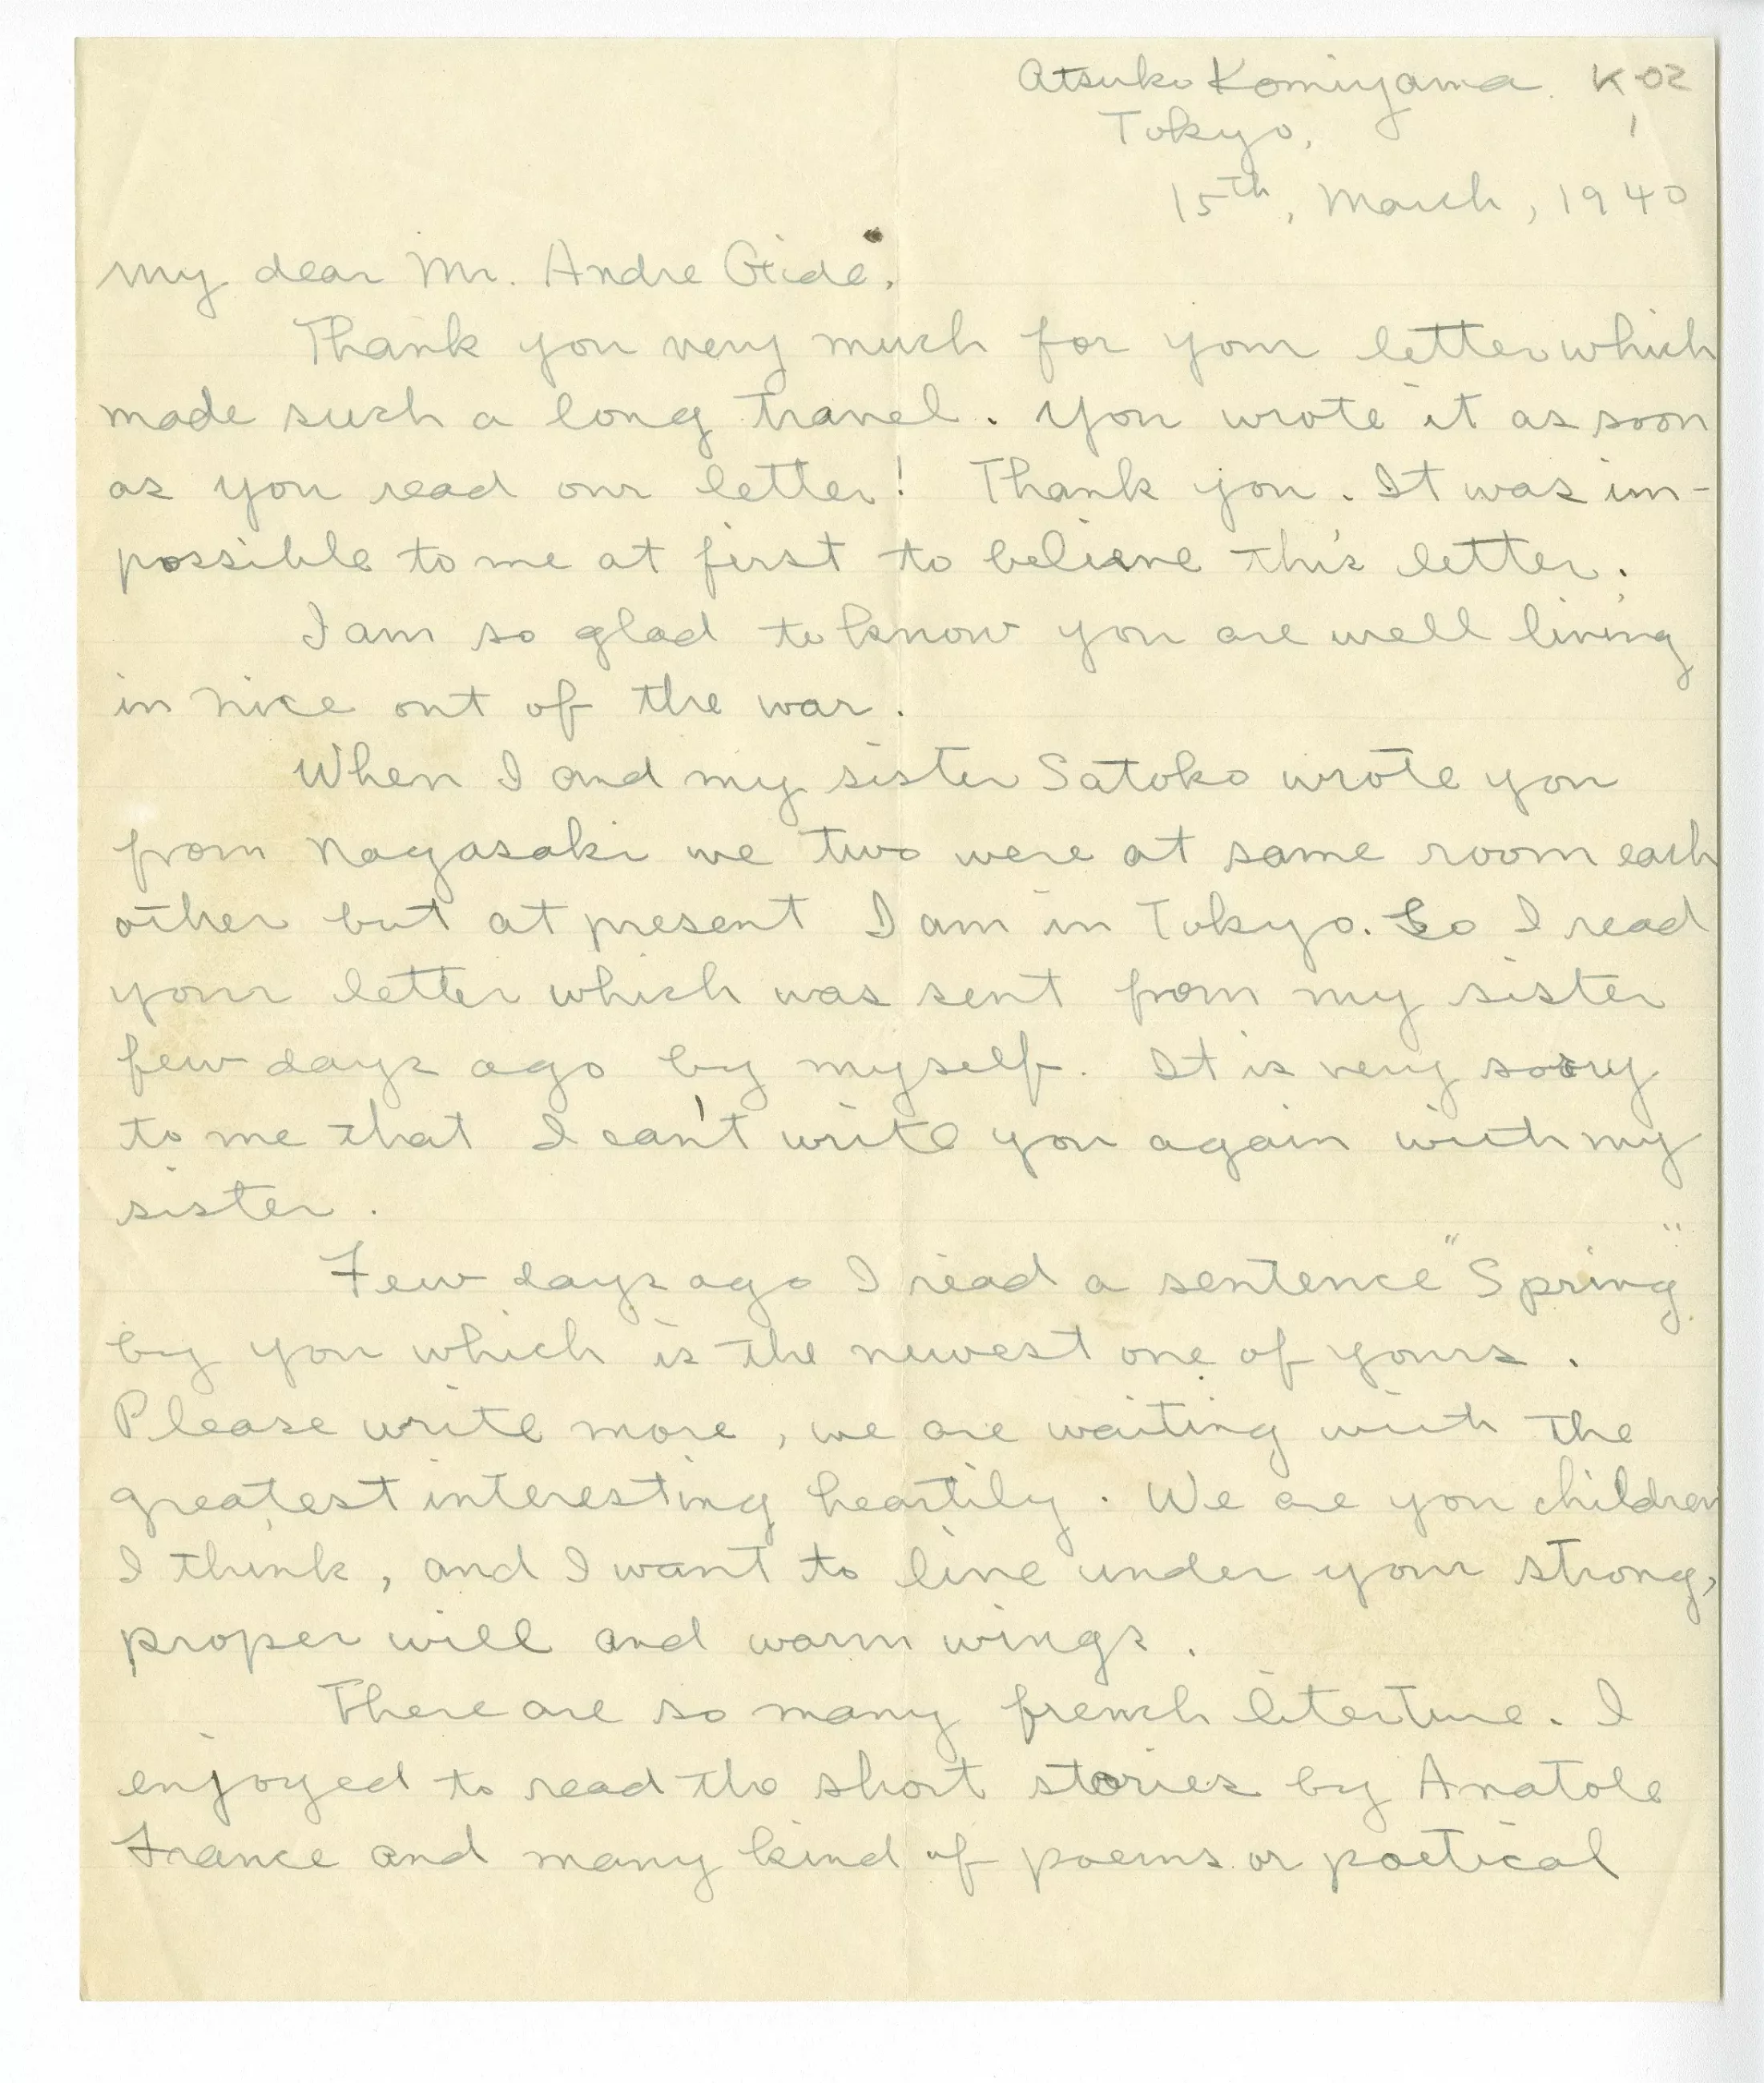 Atsuko Komiyama K-02
Tokyo, 1
15th, March, 1940
My dear Mr. Andre Gide,
Thank you very much for your letter which
made such a long travel. You wrote it as soon
as you read our letter! Thank you. It was im-
possible to me at first to believe this letter.
I am so glad to know you are well living
in Nice out of the war.
When I and my sister Satoko wrote you
from Nagasaki we two were at same room each
other but at present I am in Tokyo. So I read
your letter which was sent from my sister
few days ago by myself. It is very sorry
to me that I can't write you again with my
sister.
Few days ago I read a sentence "Spring"
by you which is the newest one of yours.
Please write more, we are waiting with the
greatest interesting heartily. We are you children
I think, and I want to live under your strong,
proper will and warm wings.
There are so many french literture. I
enjoyed to read the short stories by Anatole
France and many kind of poems or poetical